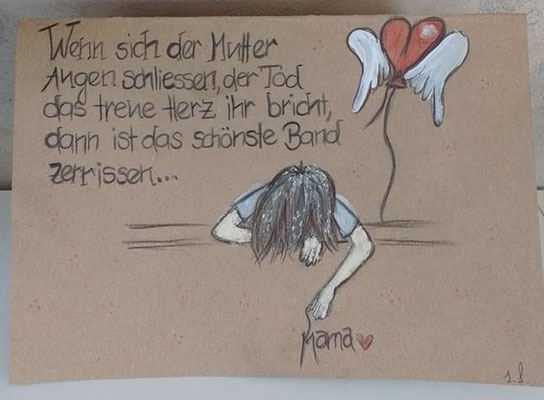 Wenn sich der Mutter
Augen schliessen, der Tod
das treue Herz ihr bricht,
dann ist das schönste Band
zerrissen...
Mama